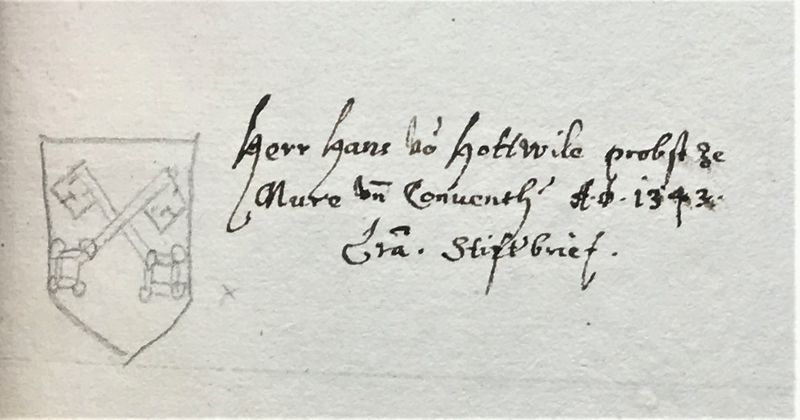 Herr Hans võ Hottwile probst ze
Mure vn̄ Conuenth' A.o. 1343.
Stiftbrief.